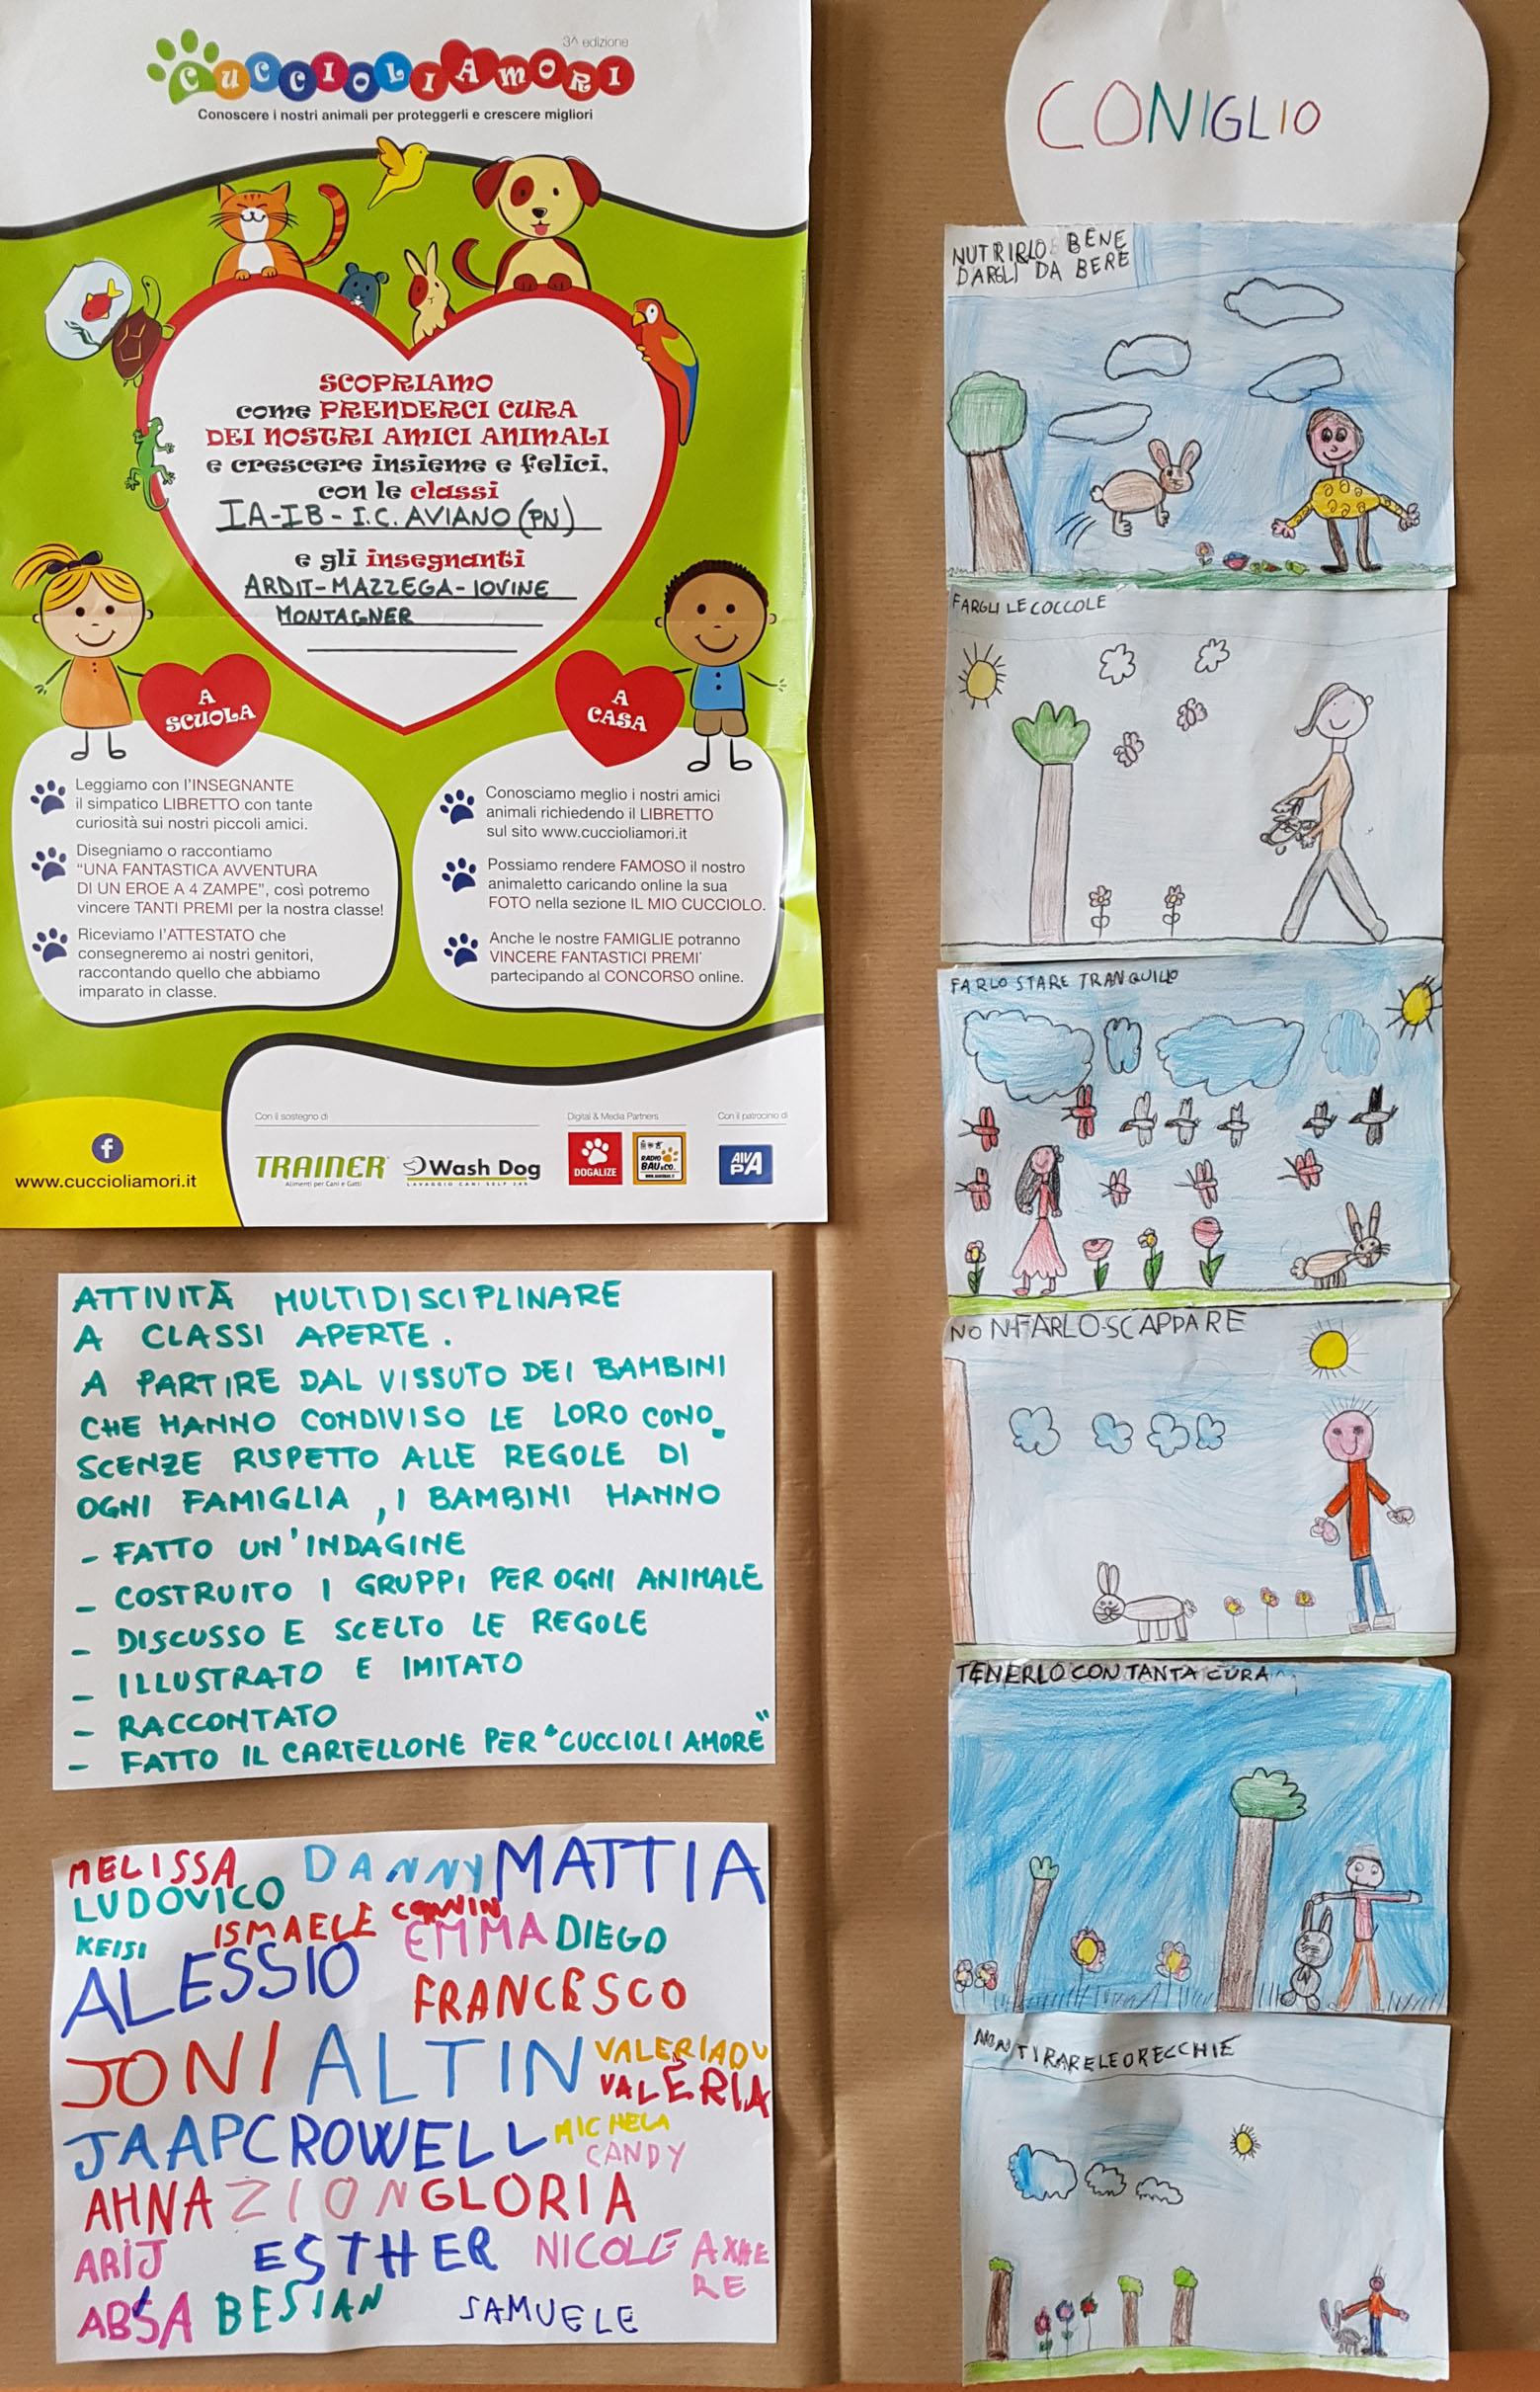 3^ edizione
CUCCIOLIAMORI
Conoscere i nostri animali per proteggerli e crescere migliori
SCOPRIAMO
come PRENDERCI CURA
DEI NOSTRI AMICI ANIMALI
e crescere insieme e felici,
con le classi
IA-IB-I.C. AVIANO (PN)
e gli insegnanti
ARDIT-MAZZEGA-IOVINE
MONTAGNER
A
SCUOLA
Leggiamo con l'INSEGNANTE
il simpatico LIBRETTO con tante
curiosità sui nostri piccoli amici.
Disegniamo o raccontiamo
"UNA FANTASTICA AVVENTURA
DI UN EROE A 4 ZAMPE", così potremo
vincere TANTI PREMI per la nostra classe!
Riceviamo l'ATTESTATO che
consegneremo ai nostri genitori,
raccontando quello che abbiamo
imparato in classe.
A
CASA
Conosciamo meglio i nostri amici
animali richiedendo il LIBRETTO
sul sito www.cuccioliamori.it
Possiamo rendere FAMOSO il nostro
animaletto caricando online la sua
FOTO nella sezione IL MIO CUCCIOLO.
Anche le nostre FAMIGLIE potranno
VINCERE FANTASTICI PREMI*
partecipando al CONCORSO online.
f
www.cuccioliamori.it
Con il sostegno di
TRAINER
Alimenti per Cani e Gatti
Wash Dog
LAVAGGIO CANI SELF 24H
Digital & Media Partners
DOGALIZE
RADIO
BAU&CO.
Con il patrocinio di
AIVPA
ATTIVITÀ MULTIDISCIPLINARE
A CLASSI APERTE.
A PARTIRE DAL VISSUTO DEI BAMBINI
CHE HANNO CONDIVISO LE LORO CONO-
SCENZE RISPETTO ALLE REGOLE DI
OGNI FAMIGLIA, I BAMBINI HANNO
- FATTO UN'INDAGINE
- COSTRUITO I GRUPPI PER OGNI ANIMALE
- DISCUSSO E SCELTO LE REGOLE
- ILLUSTRATO E IMITATO
- RACCONTATO
- FATTO IL CARTELLONE PER "CUCCIOLI AMORE"
MELISSA DANNY MATTIA
LUDOVICO
KEISI ISMAELE EMMA DIEGO
ALESSIO FRANCESCO
JONI ALTIN VALERIADU
VALERIA
JAAP CROWELL MICHELA
CANDY
AHNA ZION GLORIA
ARIJ ESTHER NICOLE AXHE
RE
ABSA BESIAN SAMUELE
CONIGLIO
NUTRIRLO BENE
DARGLI DA BERE
FARGLI LE COCCOLE
FARLO STARE TRANQUILLO
NON FARLO SCAPPARE
TENERLO CON TANTA CURA
NON TIRARE LE ORECCHIE